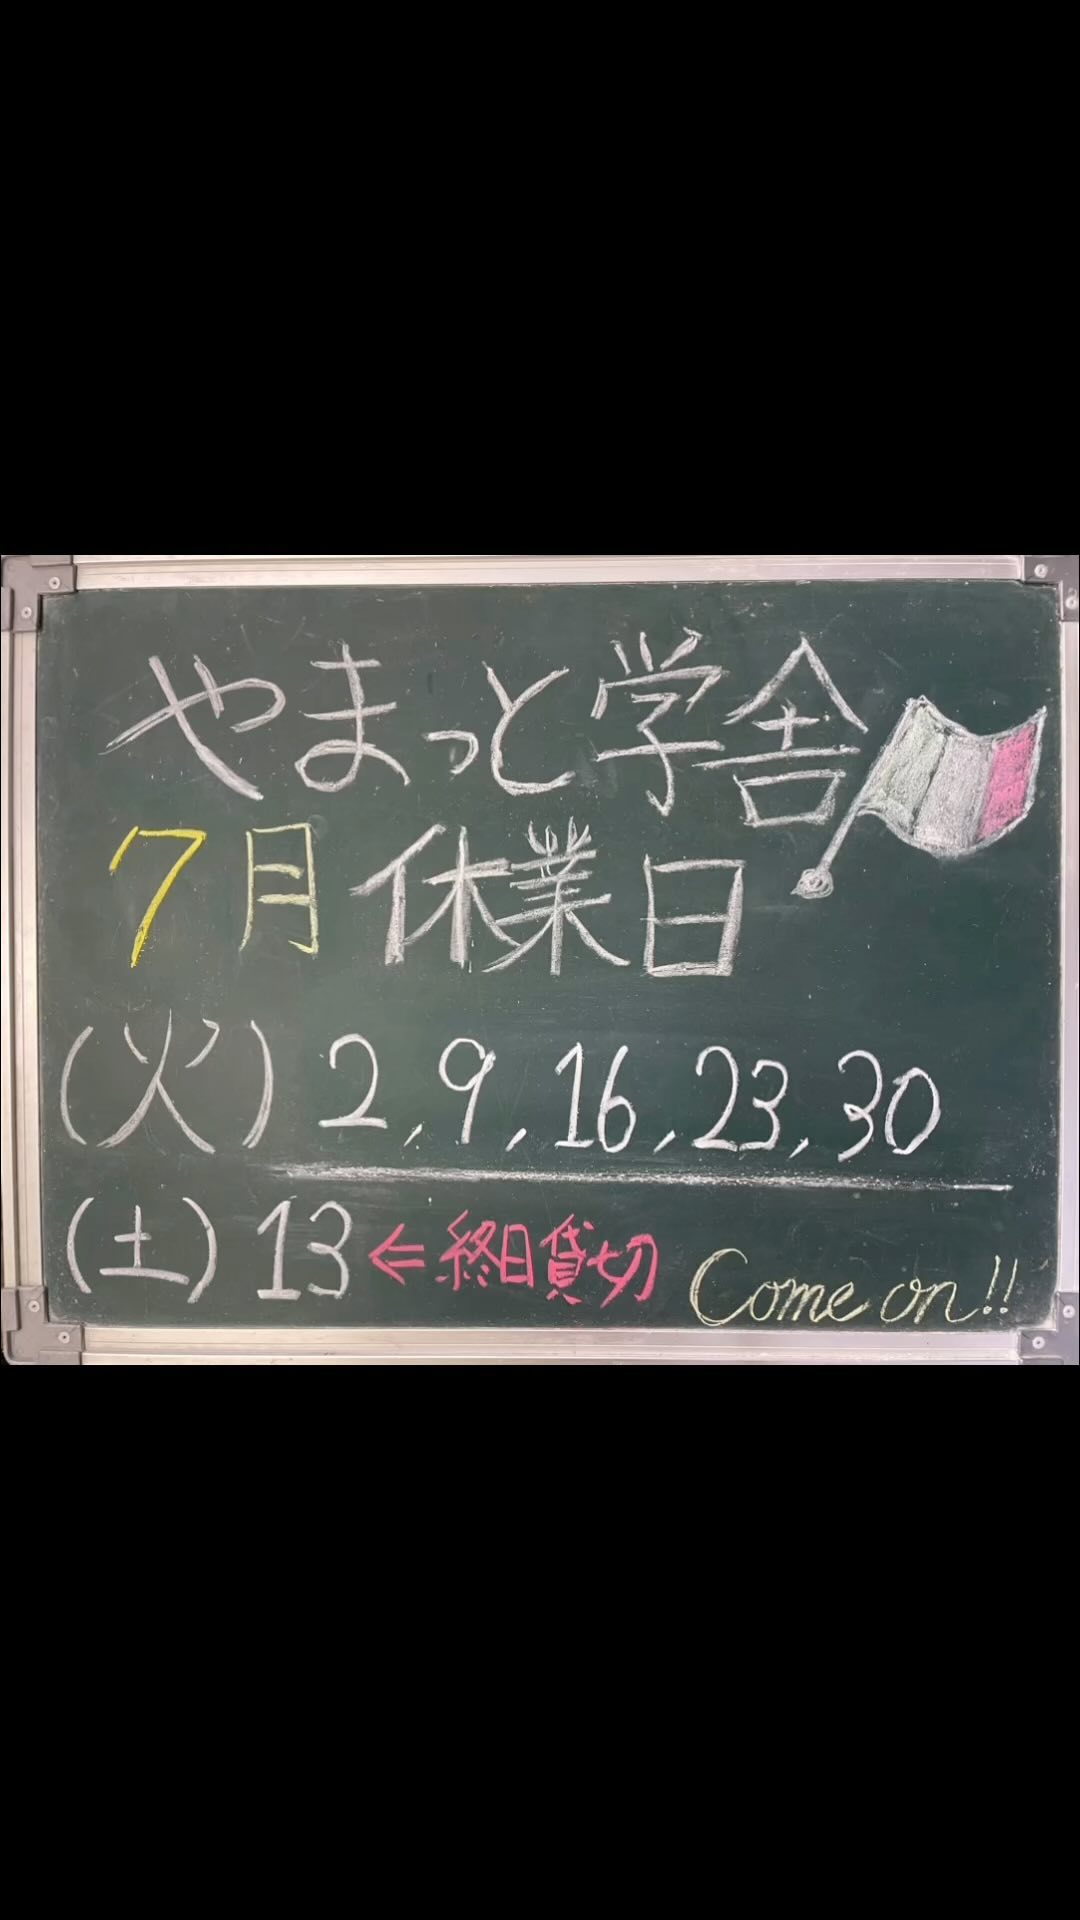 やまっと学舎
7月休業日
(火) 2, 9, 16, 23, 30
(土) 13 ⇐ 終日貸切
Come on!!